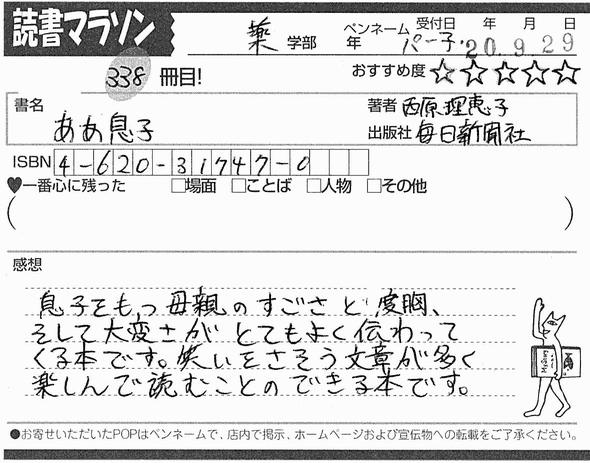 読書マラソン
薬 学部 年 ペンネーム パー子. 受付日 年 月 日
20.9.29
338 冊目!
おすすめ度 ☆☆☆☆☆
書名 あぁ息子
著者 西原理恵子
出版社 毎日新聞社
ISBN 4-620-31747-0
♥一番心に残った □場面 □ことば □人物 □その他
( )
感想
息子をもつ母親のすごさと度胸、
そして大変さがとてもよく伝わって
くる本です。笑いをさそう文章が多く
楽しんで読むことのできる本です。
●お寄せいただいたPOPはペンネームで、店内で掲示、ホームページおよび宣伝物への転載をご了承ください。